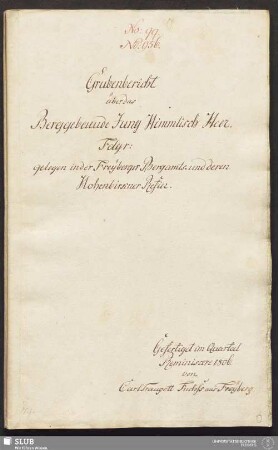 No: 99.
Grubenbericht
über das
Berggebäude Jung Himmlisch Heer
Fdgr:
gelegen in der Freyberger Bergamts- und deren
Hohenbirkner Refier.
Gefertiget im Quartal
Reminiscere 1806.
von
Carl Traugott aus Freyberg
SLUB
Wir führen Wissen.